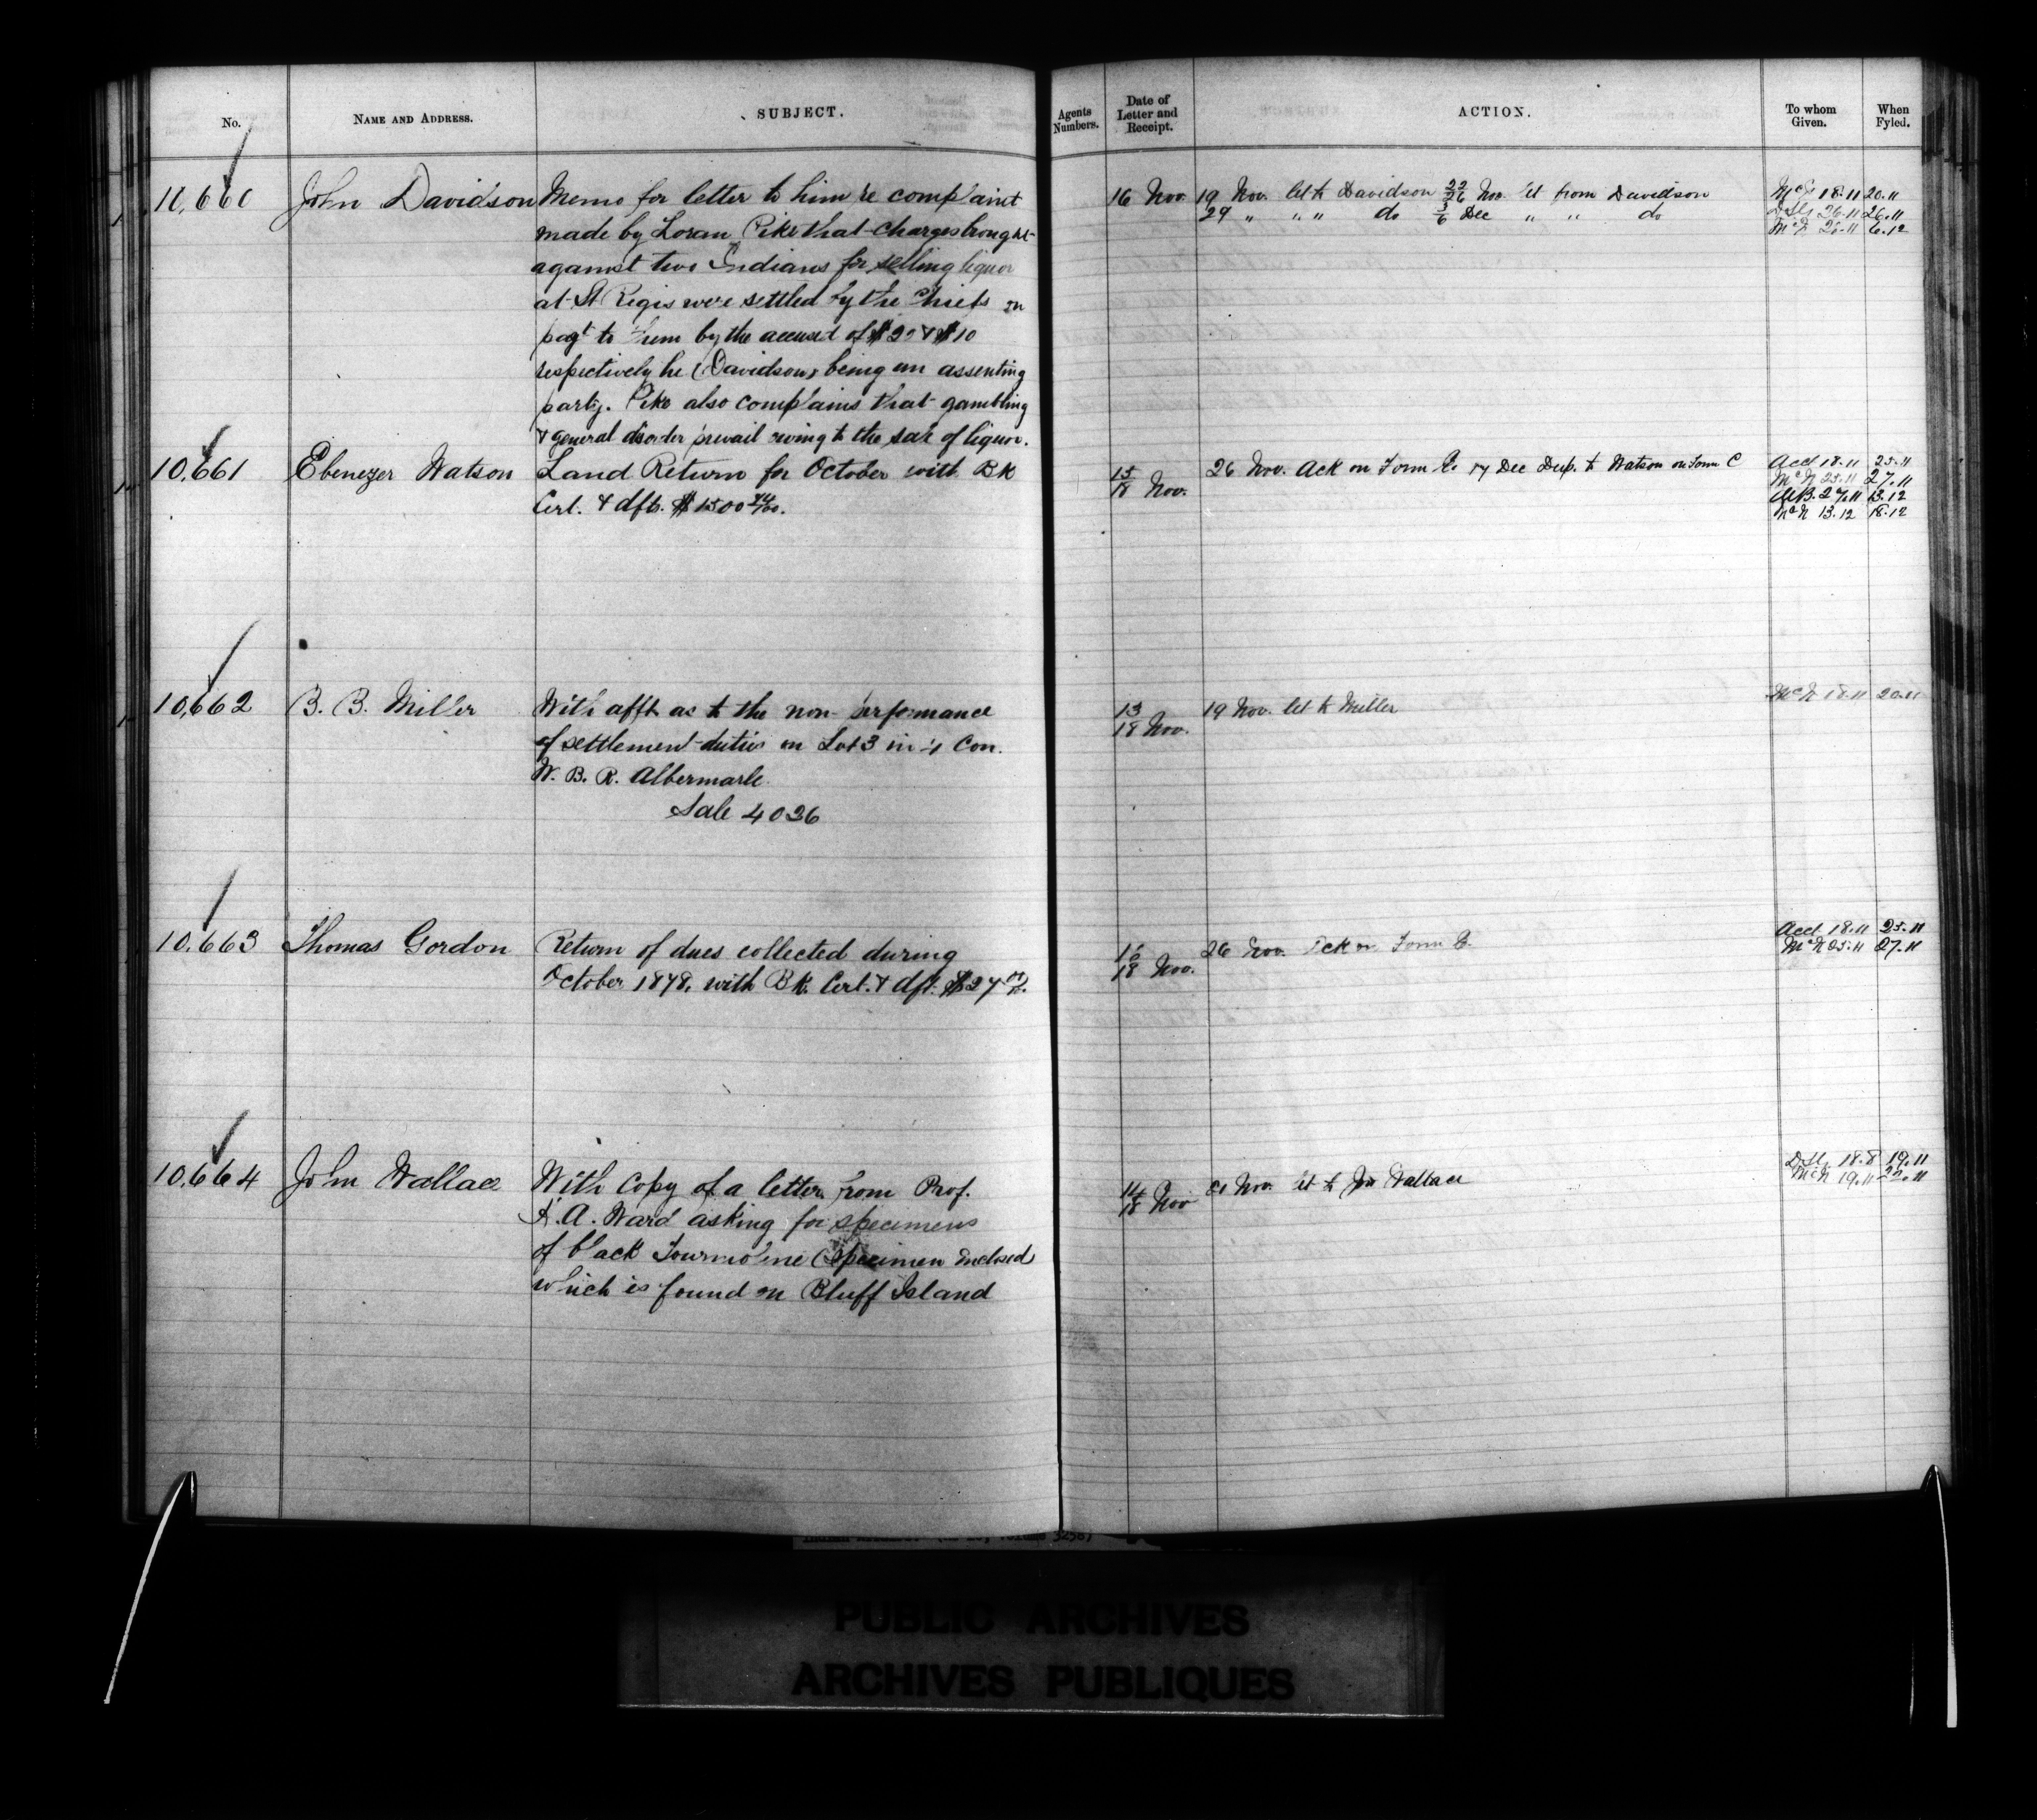 No. NAME AND ADDRESS. SUBJECT. Agents Numbers. Date of Letter and Receipt. ACTION. To whom Given. When Fyled.
10,660 John Davidson Memo for letter to him re complaint
made by Loran Pike that charges brought
against two Indians for selling liquor
at St Regis were settled by the Chiefs on
payt to them by the accused of $20 & $10
respectively he (Davidson) being an assenting
party. Pike also complains that gambling
& general disorder prevail owing to the sale of liquor.
16 Nov. 19 Nov. let to Davidson 22/26 Nov. let from Davidson
29 " " " do 3/6 Dec " " do
McN 18.11 20.11
26.11 26.11
McN 26.11 6.12
10,661 Ebenezer Watson Land Return for October with BK
Cert. & dfts. $1500 44/100.
15/18 Nov. 26 Nov. Ack on Form B. 17 Dec Dup. to Watson on Form C
Acct 18.11 25.11
McN 25.11 27.11
27.11 13.12
McN 13.12 18.12
10,662 B. B. Miller With afft as to the non-performance
of settlement duties on Lot 3 in 4 Con.
W. B. R. Albermarle
Sale 4026
13/18 Nov. 19 Nov. let to Miller
McN 18.11 20.11
10,663 Thomas Gordon Return of dues collected during
October 1878, with BK. Cert. & dft. $27
16/18 Nov. 26 Nov. Ack on Form B.
Acct 18.11 25.11
McN 25.11 27.11
10,664 John Wallace With Copy of a letter from Prof.
A. Ward asking for specimens
of black Tourmoline (Specimen Enclosed
which is found on Bluff Island
14/18 Nov 21 Nov. let to Jno Wallace
18.8 19.11
McN 19.11 22.11
PUBLIC ARCHIVES
ARCHIVES PUBLIQUES